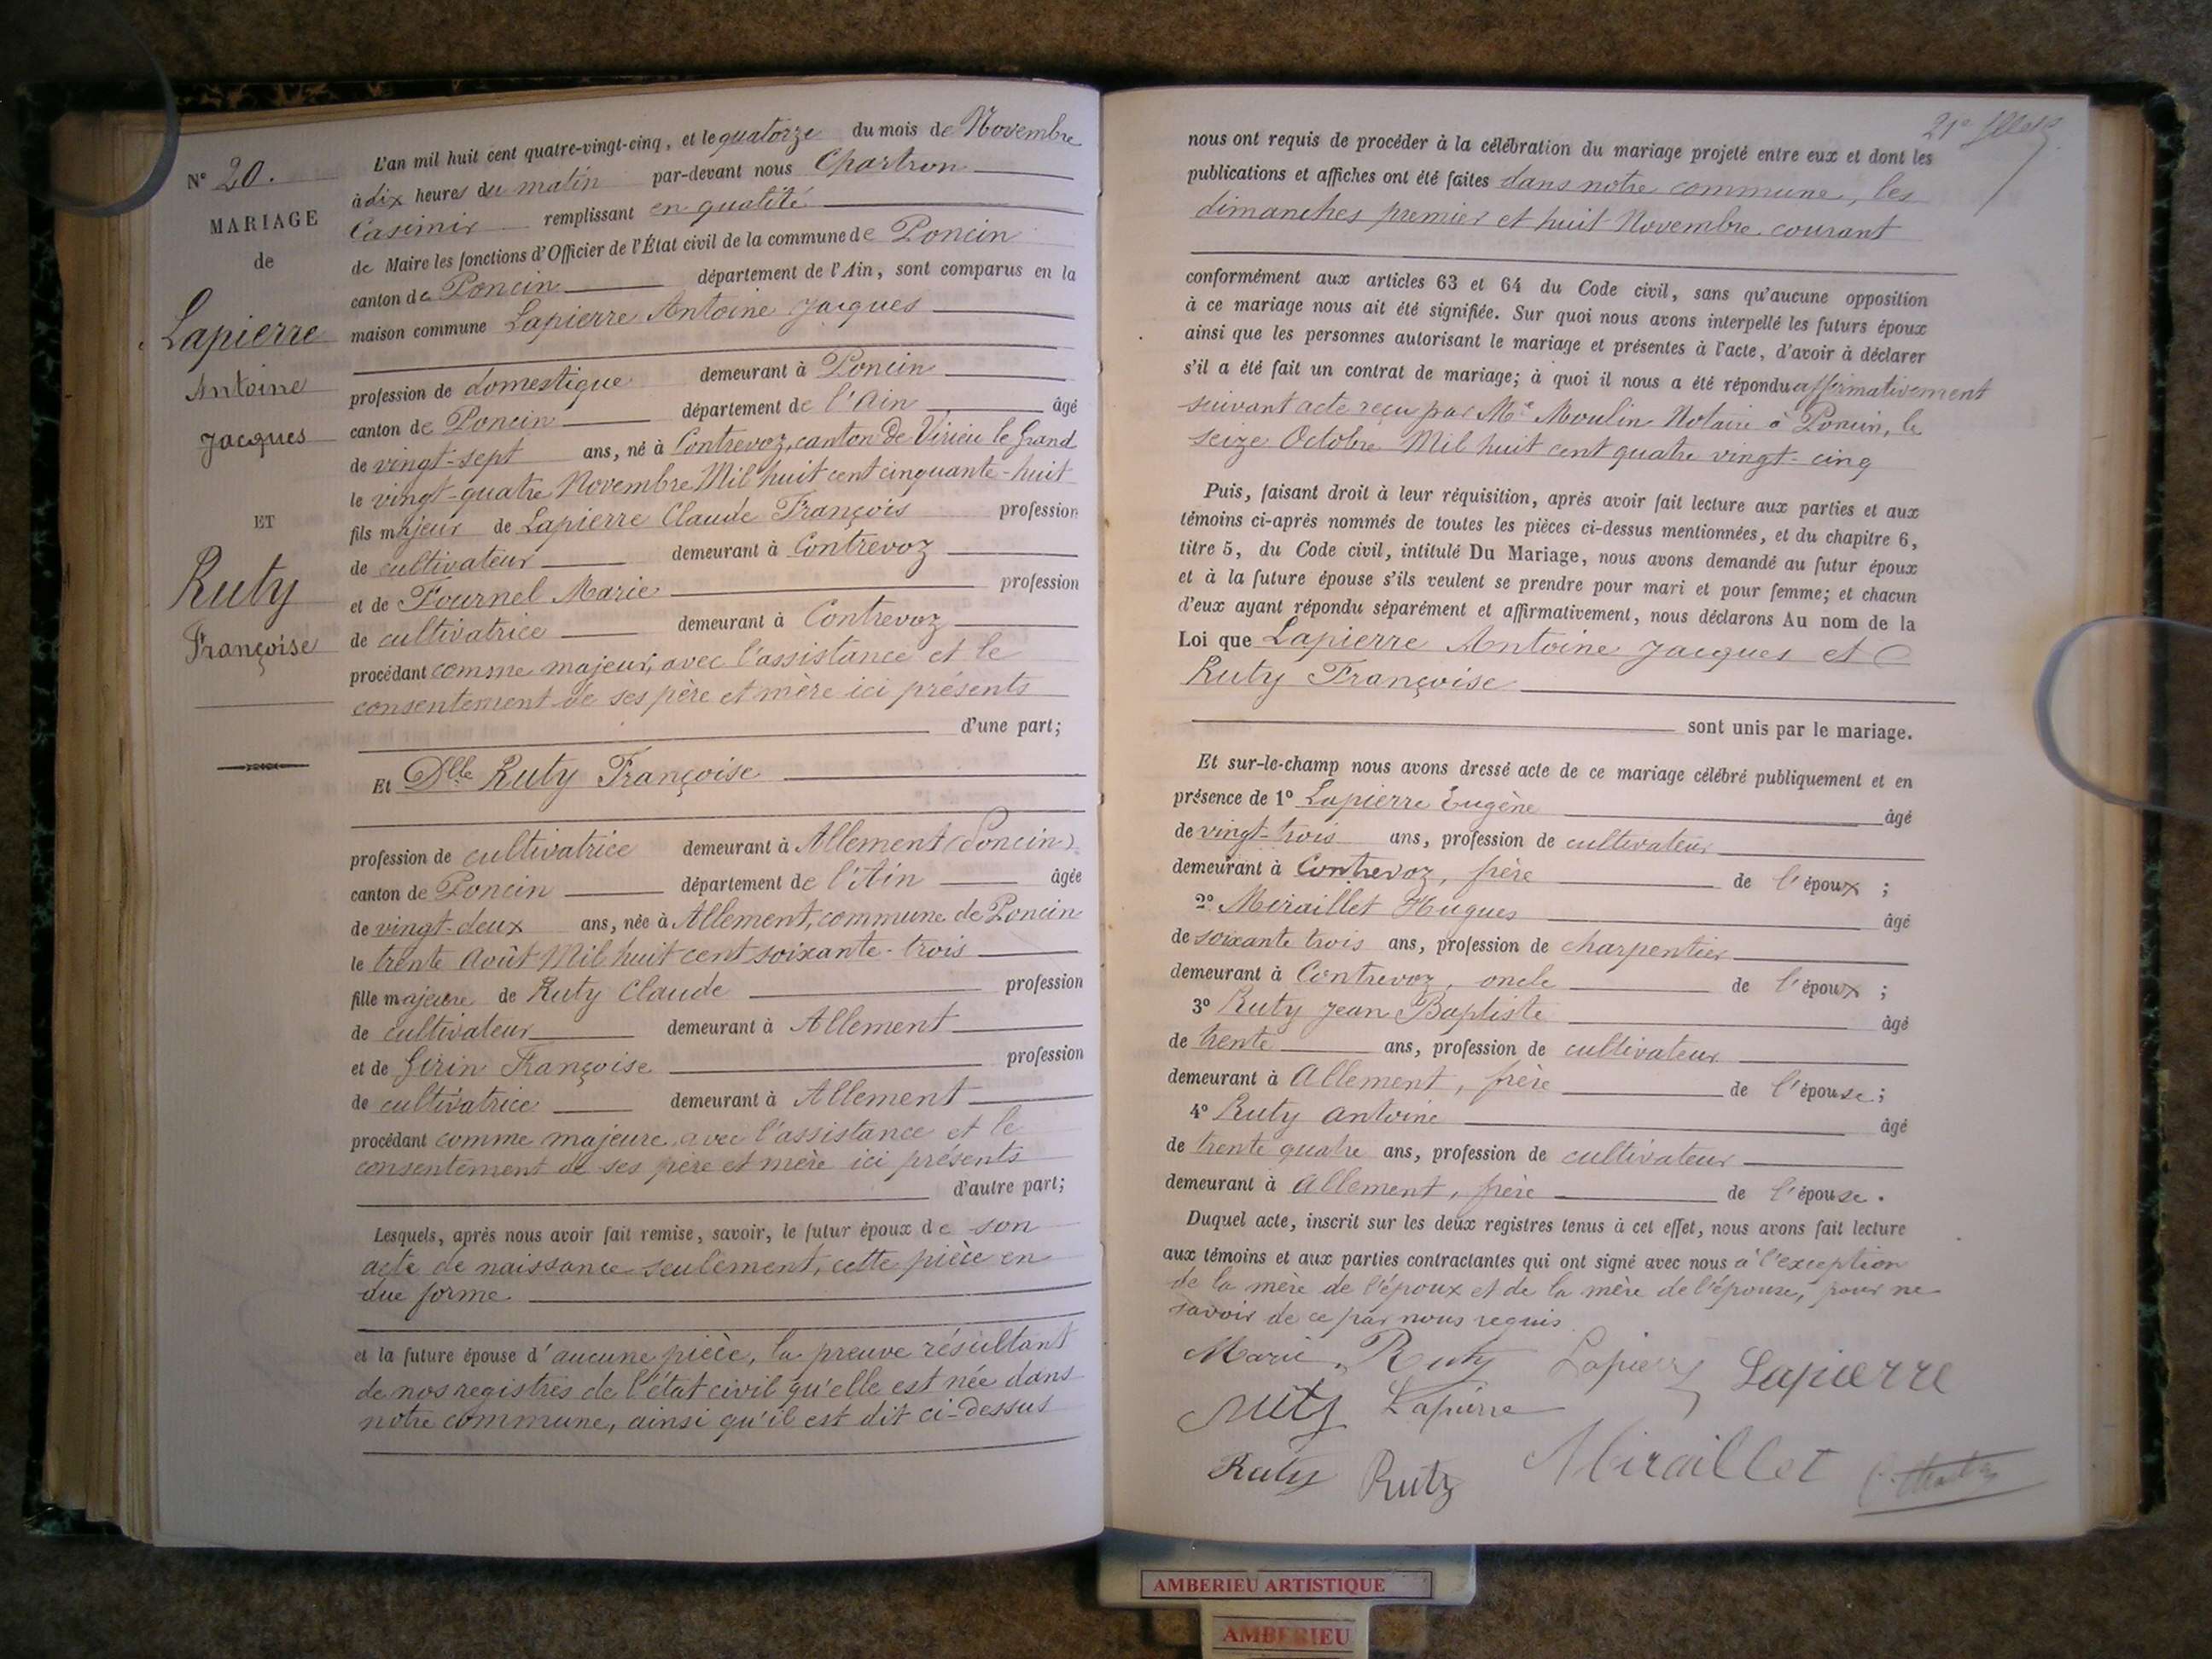 N° 20.
MARIAGE
de
Lapierre
Antoine
Jacques
ET
Ruty
Françoise
L'an mil huit cent quatre-vingt-cinq, et le quatorze du mois de Novembre
à dix heures du matin par-devant nous Chartron
Casimir remplissant en qualité
de Maire les fonctions d'Officier de l'État civil de la commune de Poncin
canton de Poncin département de l'Ain, sont comparus en la
maison commune Lapierre Antoine Jacques
profession de domestique demeurant à Poncin
canton de Poncin département de l'Ain âgé
de vingt-sept ans, né à Contrevoz, canton de Virieu le Grand
le vingt-quatre Novembre Mil huit cent cinquante-huit
fils majeur de Lapierre Claude François profession
de cultivateur demeurant à Contrevoz
et de Fournel Marie profession
de cultivatrice demeurant à Contrevoz
procédant comme majeur, avec l'assistance et le
consentement de ses père et mère ici présents
d'une part;
Et Dlle Ruty Françoise
profession de cultivatrice demeurant à Allement (Poncin)
canton de Poncin département de l'Ain âgée
de vingt-deux ans, née à Allement, commune de Poncin
le trente Août Mil huit cent soixante-trois
fille majeure de Ruty Claude profession
de cultivateur demeurant à Allement
et de Girin Françoise profession
de cultivatrice demeurant à Allement
procédant comme majeure avec l'assistance et le
consentement de ses père et mère ici présents
d'autre part;
Lesquels, après nous avoir fait remise, savoir, le futur époux de son
acte de naissance seulement, cette pièce en
due forme
et la future épouse d'aucune pièce, la preuve résultant
de nos registres de l'état civil qu'elle est née dans
notre commune, ainsi qu'il est dit ci-dessus
21e
nous ont requis de procéder à la célébration du mariage projeté entre eux et dont les
publications et affiches ont été faites dans notre commune, les
dimanches premier et huit Novembre courant
conformément aux articles 63 et 64 du Code civil, sans qu'aucune opposition
à ce mariage nous ait été signifiée. Sur quoi nous avons interpellé les futurs époux
ainsi que les personnes autorisant le mariage et présentes à l'acte, d'avoir à déclarer
s'il a été fait un contrat de mariage; à quoi il nous a été répondu affirmativement
suivant acte reçu par Me Moulin Notaire à Poncin, le
seize Octobre Mil huit cent quatre vingt-cinq
Puis, faisant droit à leur réquisition, après avoir fait lecture aux parties et aux
témoins ci-après nommés de toutes les pièces ci-dessus mentionnées, et du chapitre 6,
titre 5, du Code civil, intitulé Du Mariage, nous avons demandé au futur époux
et à la future épouse s'ils veulent se prendre pour mari et pour femme; et chacun
d'eux ayant répondu séparément et affirmativement, nous déclarons Au nom de la
Loi que Lapierre Antoine Jacques et
Ruty Françoise
sont unis par le mariage.
Et sur-le-champ nous avons dressé acte de ce mariage célébré publiquement et en
présence de 1° Lapierre Eugène âgé
de vingt-trois ans, profession de cultivateur
demeurant à Contrevoz, frère de l'époux ;
2° Miraillet Hugues âgé
de soixante trois ans, profession de charpentier
demeurant à Contrevoz, oncle de l'époux ;
3° Ruty Jean Baptiste âgé
de trente ans, profession de cultivateur
demeurant à Allement, frère de l'épouse;
4° Ruty Antoine âgé
de trente quatre ans, profession de cultivateur
demeurant à Allement, frère de l'épouse.
Duquel acte, inscrit sur les deux registres tenus à cet effet, nous avons fait lecture
aux témoins et aux parties contractantes qui ont signé avec nous à l'exception
de la mère de l'époux et de la mère de l'épouse, pour ne
savoir de ce par nous requis.
Marie Ruty Lapierre Lapierre
Ruty Lapierre
Ruty Ruty Miraillet
AMBERIEU ARTISTIQUE
AMBERIEU